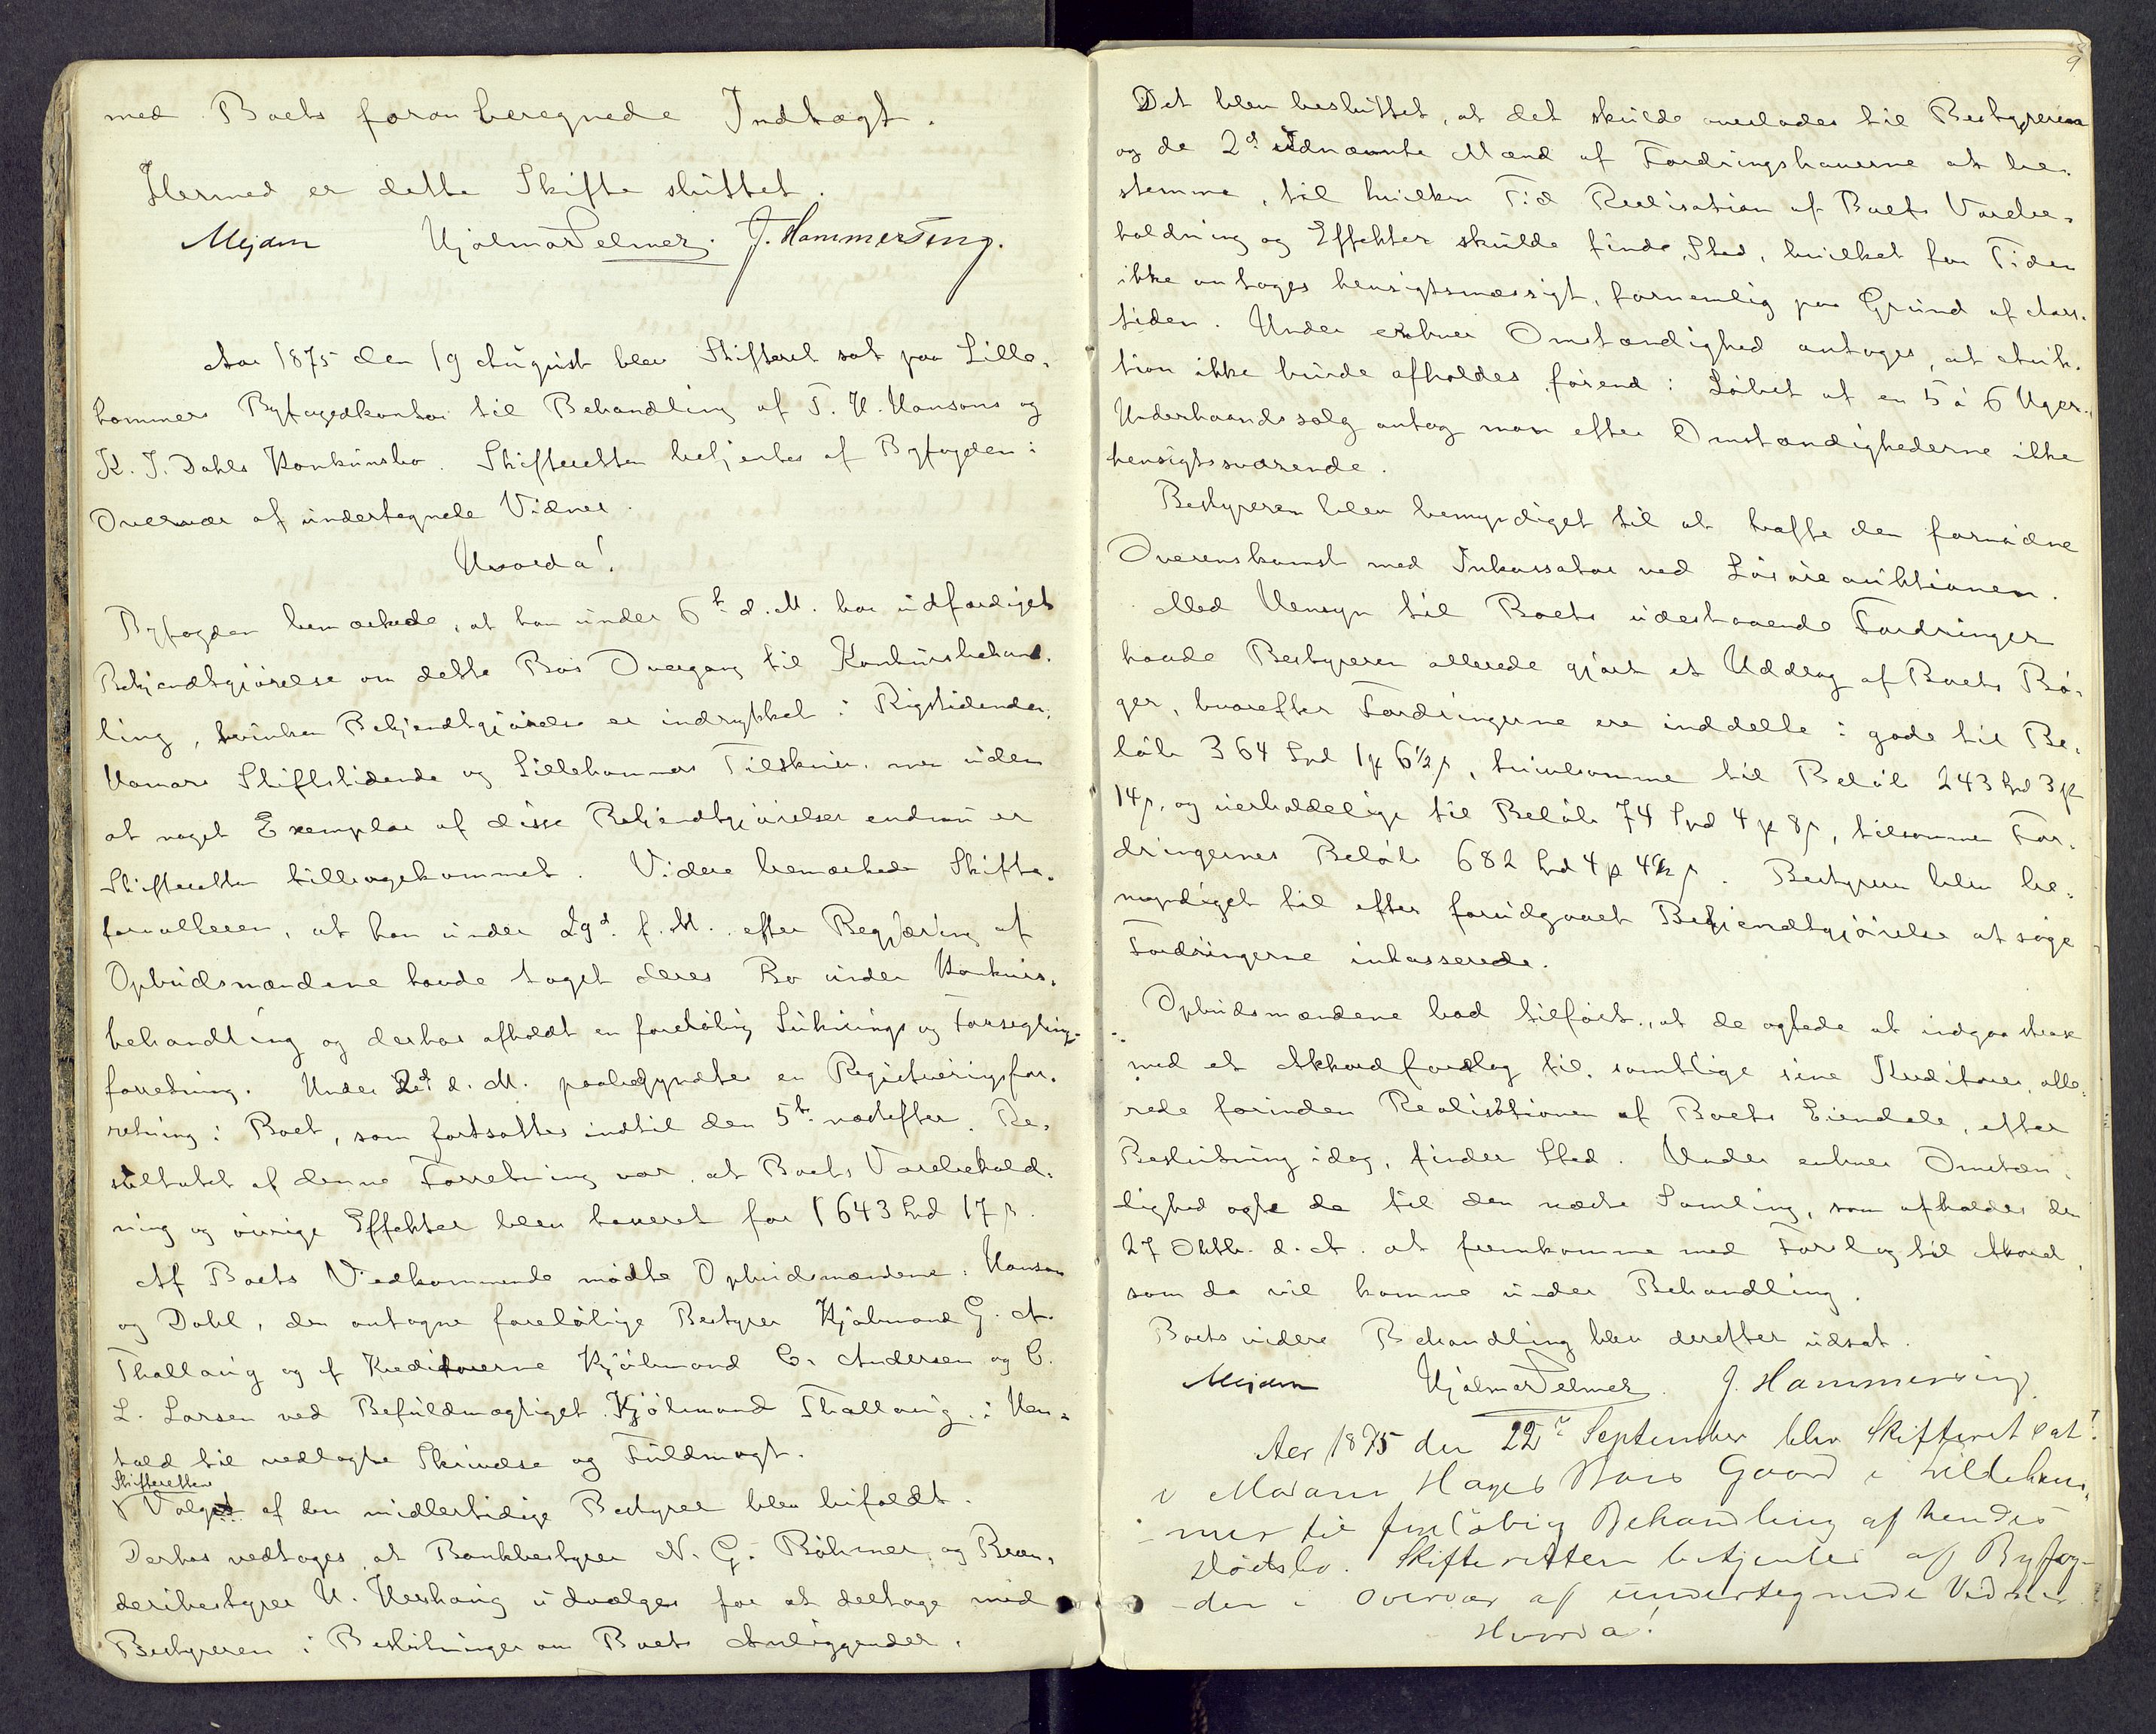 med Boets foran beregnede Indtægt.
Hermed er dette Skifte sluttet.
Mejdam Hjalmar Selmer. J. Hammersing.
Aar 1875 den 19 August blev Skifteret sat paa Lille-
hammers Byfogedkontor til Behandling af T. H. Hansons og
K. J. Dahls Konkursbo. Skifteretten betjentes af Byfogden i
Overvær af undertegnede Vidner.
Hvorda!
Byfogden bemærkede, at han under 6te d. M. har udfærdiget
Bekjendtgjørelse om dette Bos Overgang til Konkursbehand-
ling, hvilken Bekjendtgjørelse er indrykket i Rigstidenden,
Hamars Stiftstidende og Lillehammers Tilskuer, men uden
at noget Exemplar af disse Bekjendtgjørelser endnu er
Skifteretten tilbagekommet. Videre bemærkede Skifte-
forvalteren, at han under 29d. f. M. efter Begjæring af
Opbudsmændene havde taget deres Bo under Konkurs-
behandling og derhos afholdt en foreløbig Luknings og Forseglings-
forretning. Under 2d d. M. paabegyndtes en Registreringsfor-
retning i Boet, som fortsattes indtil den 5te næstefter. Re-
sultatet af denne Forretning var, at Boets Varebehold-
ning og øvrige Effekter blev taxeret for 1643 Spd 17 s.
Af Boets Vedkommende mødte Opbudsmændene: Hanson
og Dahl, den antagne foreløbige Bestyrer Kjøbmand G. A.
Thallaug og af Kreditorerne Kjøbmand C. Andersen og C.
L. Larsen ved Befuldmægtiget Kjøbmand Thallaug, i Hen-
hold til vedlagte Skrivelse og Fuldmagt.
Skifterettens
Valget af den midlertidige Bestyrer blev bifaldt.
Derhos vedtoges, at Bankbestyrer N. G. Böhmer og Bræn-
deribestyrer H. Herhaug udvælges for at deltage med
Bestyreren i Beslutninger om Boets Anliggender.
9
Det blev besluttet, at det skulde overlades til Bestyreren
og de 2d udnævnte Mænd af Fordringshaverne at be-
stemme, til hvilken Tid Realisation af Boets Varebe-
holdning og Effekter skulde finde Sted, hvilket for Tiden
ikke antoges hensigtsmæssigt, fornemlig paa Grund af Aars-
tiden. Under enhver Omstændighed antoges, at Auk-
tion ikke burde afholdes førend i Løbet af en 5 à 6 Uger.
Underhaandssalg antog man efter Omstændighederne ikke
hensigtssvarende.
Bestyreren blev bemyndiget til at træffe den fornødne
Overenskomst med Inkassator ved Løsøreauktionen.
Med Hensyn til Boets udestaaende Fordringer
havde Bestyreren allerede gjort et Uddrag af Boets Bø-
ger, hvorefter Fordringerne ere inddelte i gode til Be-
løb 364 Spd 1 ₰ 6½ s, tvivlsomme til Beløb 243 Spd 3 ₰
14 s, og uerholdelige til Beløb 74 Spd 4 ₰ 8 s, tilsammen For-
dringernes Beløb 682 Spd 4 ₰ 4½ s. Bestyreren blev be-
myndiget til efter forudgaaet Bekjendtgjørelse at søge
Fordringerne inkasserede.
Opbudsmændene bad tilført, at de agtede at indgaa strax
med et Akkordforslag til samtlige sine Kreditorer, alle-
rede forinden Realisationen af Boets Eiendele, efter
Beslutning idag, finder Sted. Under enhver Omstæn-
lighed agte de til den næste Samling, som afholdes den
27 Oktb. d. A. at fremkomme med Forslag til Akord,
som da vil komme under Behandling.
Boets videre Behandling blev derefter udsat.
Mejdam Hjalmar Selmer. J. Hammersing
Aar 1875 den 22de September blev Skifteret sat
i Madam Hages Boes Gaard i Lilleham-
mer til foreløbig Behandling af hendes
Dødsbo. Skifteretten betjentes af Byfog-
den i Overvær af undertegnede Vidner
Hvorda!